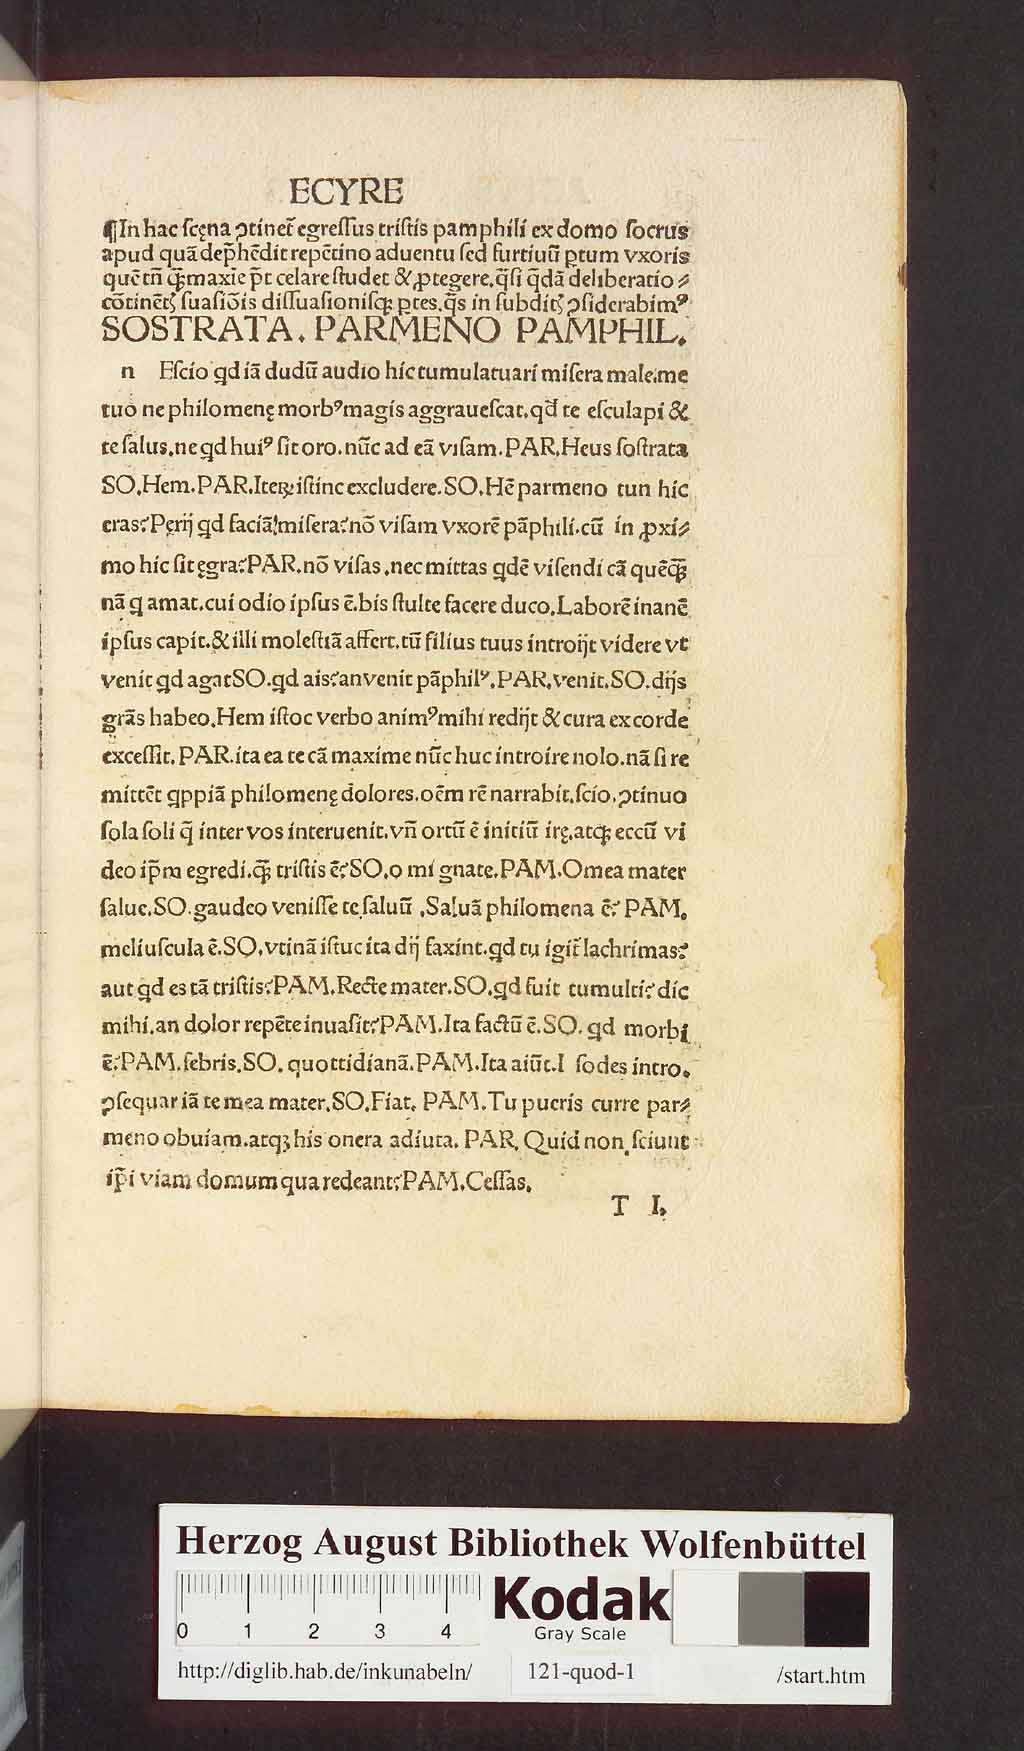 ECYRE
¶In hac scęna ꝯtinet᷑ egressus tristis pamphili ex domo socrus
apud quā dep̄hēdit repētino aduentu sed furtiuū ꝑtum vxoris
quē tn̄ ꝗ̄ꝫ maxie p̄t celare studet & ꝓtegere. q̄si q̄dā deliberatio⸗
cōtinēt᷑ suasiōis dissuasionisqꝫ ꝑtes. q̄s in subdit᷑ ꝯsiderabimꝰ
SOSTRATA. PARMENO PAMPHIL.
n Escio ꝗd iā dudū audio hic tumulatuari misera male. me
tuo ne philomenę morbꝰ magis aggrauescat. qd̄ te esculapi &
te salus. ne ꝗd huiꝰ sit oro. nūc ad eā visam. PAR. Heus sostrata
SO. Hem. PAR. Iteꝝ istinc excludere. SO. Hē parmeno tun hic
eras? Perij ꝗd faciā! misera? nō visam vxorē pāphili. cū in ꝓxi⸗
mo hic sit ęgra? PAR. nō visas. nec mittas ꝗdē visendi cā quēꝗ̄ꝫ
nā ꝗ amat. cui odio ipsus ē. bis stulte facere duco. Laborē inanē
ipsus capit. & illi molestiā affert. tū filius tuus introijt videre vt
venit ꝗd agat SO. ꝗd ais? an venit pāphilꝰ. PAR. venit. SO. dijs
grās habeo. Hem istoc verbo animꝰ mihi redijt & cura ex corde
excessit. PAR. ita ea te cā maxime nūc huc introire nolo. nā si re
mittēt ꝗppiā philomenę dolores. oēm rē narrabit. scio. ꝯtinuo
sola soli q̄ inter vos interuenit. vn̄ ortū ē initiū irę. atqꝫ eccū vi
deo ip̄m egredi. ꝗ̄ꝫ tristis ē? SO. o mi gnate. PAM. O mea mater
salue. SO. gaudeo venisse te saluū . Saluā philomena ē? PAM.
meliuscula ē. SO. vtinā istuc ita dij faxint. ꝗd tu igit᷑ lachrimas?
aut ꝗd es tā tristis? PAM. Recte mater. SO. ꝗd fuit tumulti? dic
mihi. an dolor repēte inuasit? PAM. Ita factū ē. SO. ꝗd morbi
ē? PAM. febris. SO. quottidianā. PAM. Ita aiūt. I sodes intro.
ꝯsequar iā te mea mater. SO. Fiat. PAM. Tu pueris curre par⸗
meno obuiam. atqꝫ his onera adiuta. PAR. Quid non sciunt
ip̄i viam domum qua redeant? PAM. Cessas.
T I.
Herzog August Bibliothek Wolfenbüttel
0 1 2 3 4
Kodak
Gray Scale
http://diglib.hab.de/inkunabeln/ 121-quod-1 /start.htm